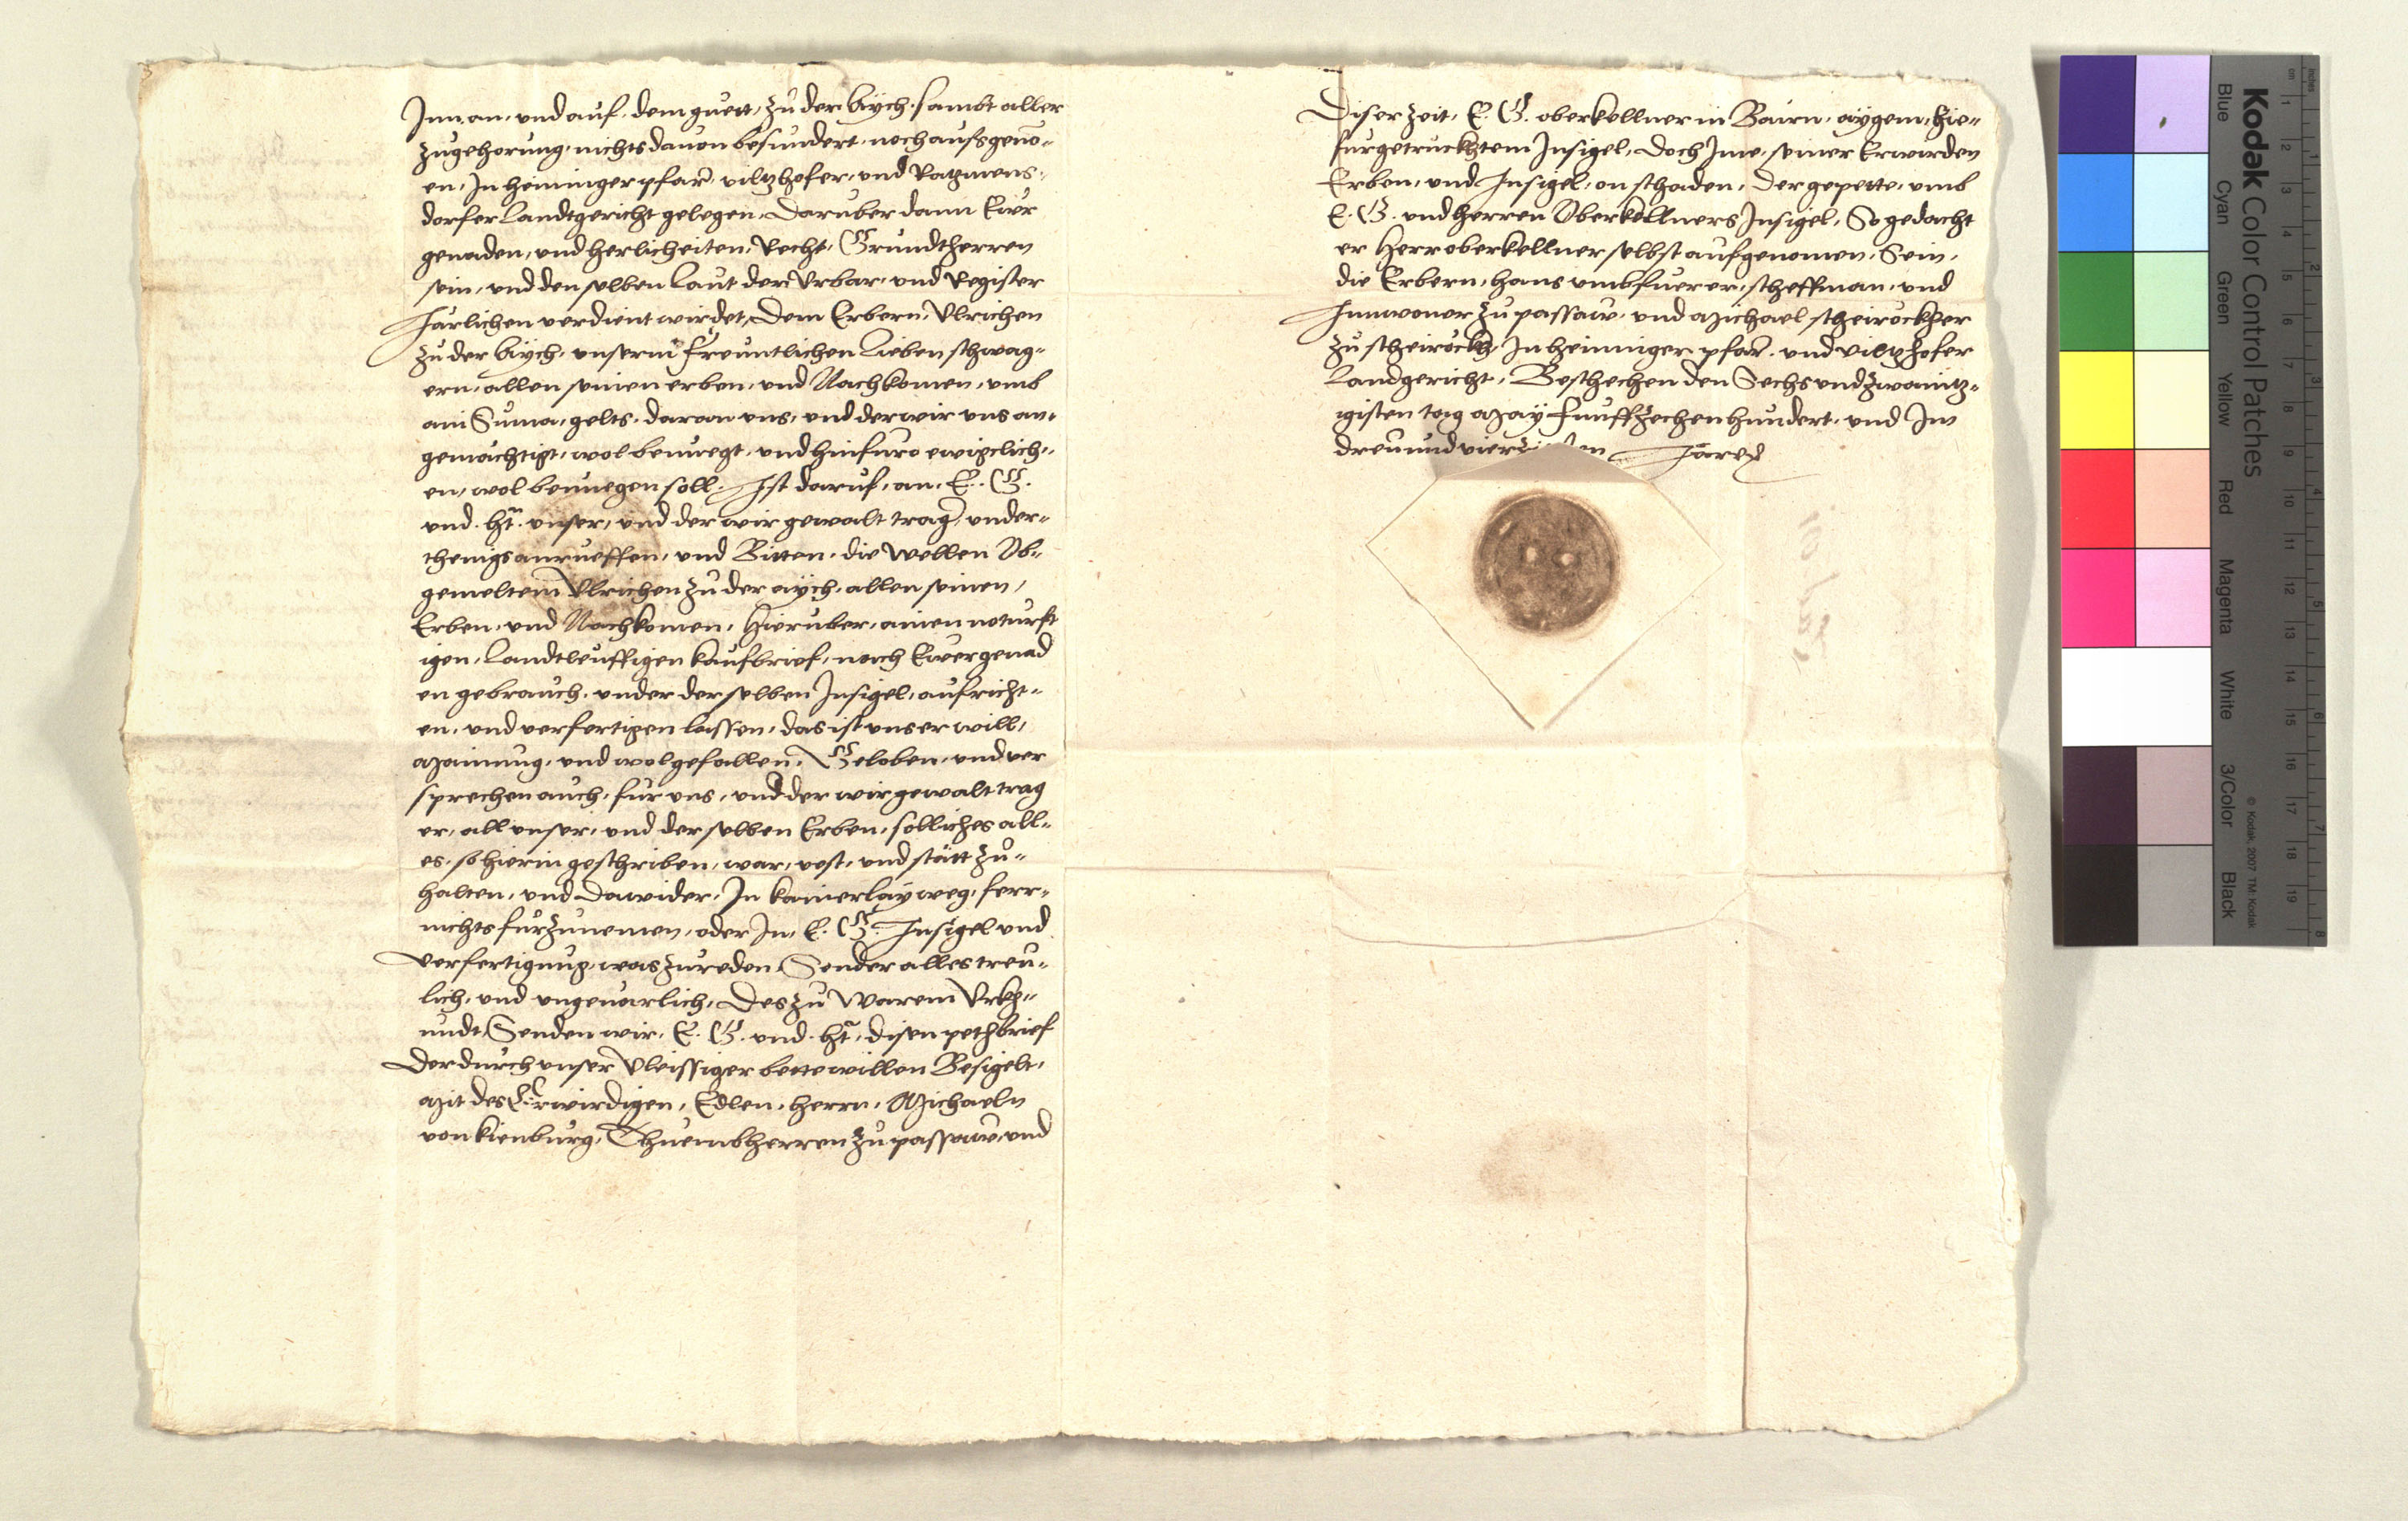 Inn, an, vnd auf, dem guett, zu der Aÿch, sambt aller
zugehorung, nichts dauon besundert, noch aufsgenō-
en, In heininger pfarr, viltzhofer, vnd Ratzmens-
dorfer Landtgericht gelegen, Daruber dann Ewr
genaden, vnd herlicheiten, Recht, Grundtherren
sein, vnd den selben laut der Vrbar, vnd Register
Järlichen verdient wirdet, Dem Erbern, Vlrichen
zu der Aÿch, vnserm freuntlichen lieben schwag-
ern, allen seinen erben, vnd Nachkomen, vmb
ain Suma, gelts, daran vns, vnd der wir vns an-
gemächtigt, wol benuegt, vnd hinfuro ewigclich-
en, wol benuegen soll. Ist daruf, an, E. G.
vnd ht. vnser, vnd der wir gewalt trag, vnder-
thenigs anrueffen, vnd Bitten, die wellen Ob-
gemeltem Vlrichen zu der aÿch, allen seinen,
Erben, vnd Nachkomen, Hieruber, ainen noturft
igen, Landtleuffigen kaufbrief, nach Ewer genad
en gebrauch, vnder der selben Insigel, aufricht-
en, vnd verfertigen lassen, das ist vnser will,
Mainung, vnd wolgefallen, Geloben, vnd ver
sprechen auch, fur vns, vnd der wir gewalt trag
er, all vnser, vnd der selben Erben, solliches all-
es, so hierin geschriben, war, vest, vnd stätt zu-
halten, vnd Dawider, In kainerlaÿ weg, ferr-
nichts furzunemen, oder In, E. G. Insigel vnd
verfertigung, was zureden, Sonder alles treu-
lich, vnd vngeuarlich, Des zu Warem Vrkh-
undt, Senden wir, E. G. vnd ht. disen pethbrief
Der durch vnser Vleissiger bette willen Besigelt,
Mit des Erwirdigen, Edlen, herrn, Michaeln
von kienburg, Thuembherren zu passaw, vnd
Diser zeit, E. G. oberkellner in Bairn, aÿgem, hie-
furgetruckhtem Insigel, Doch Ime, seiner Erwirden
Erben, vnd Insigel, on schaden, Der gepette, vmb
E. G. vnd herren Oberkellners Insigel, So gedacht
er Herr oberkellner selbst aufgenomen, Sein,
die Erbern, hans vmbfuerer, scheffman, vnd
Innwoner zu passaw, vnd Michael scheiröckher
zu scheirockh, In heininger pfarr, vnd vilshofer
Landgericht, Beschechen den Sechs vnd zwaintz-
igisten tag Maÿ funffzechenhundert, vnd Im
dreu und Jare